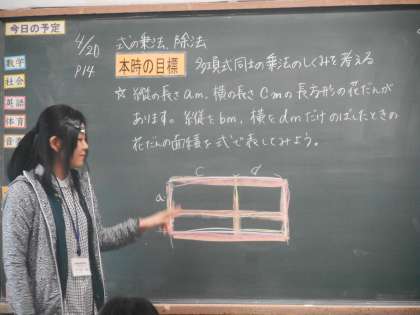 今日の予定
数学
社会
英語
体育
音
4/20
P14
式の乗法、除法
本時の目標
多項式同士の乗法のしくみを考える
☆ 縦の長さ am、横の長さ cmの長方形の花だんが
あります。縦を bm、横を dmだけのばしたときの
花だんの面積を式で表してみよう。
c d
a